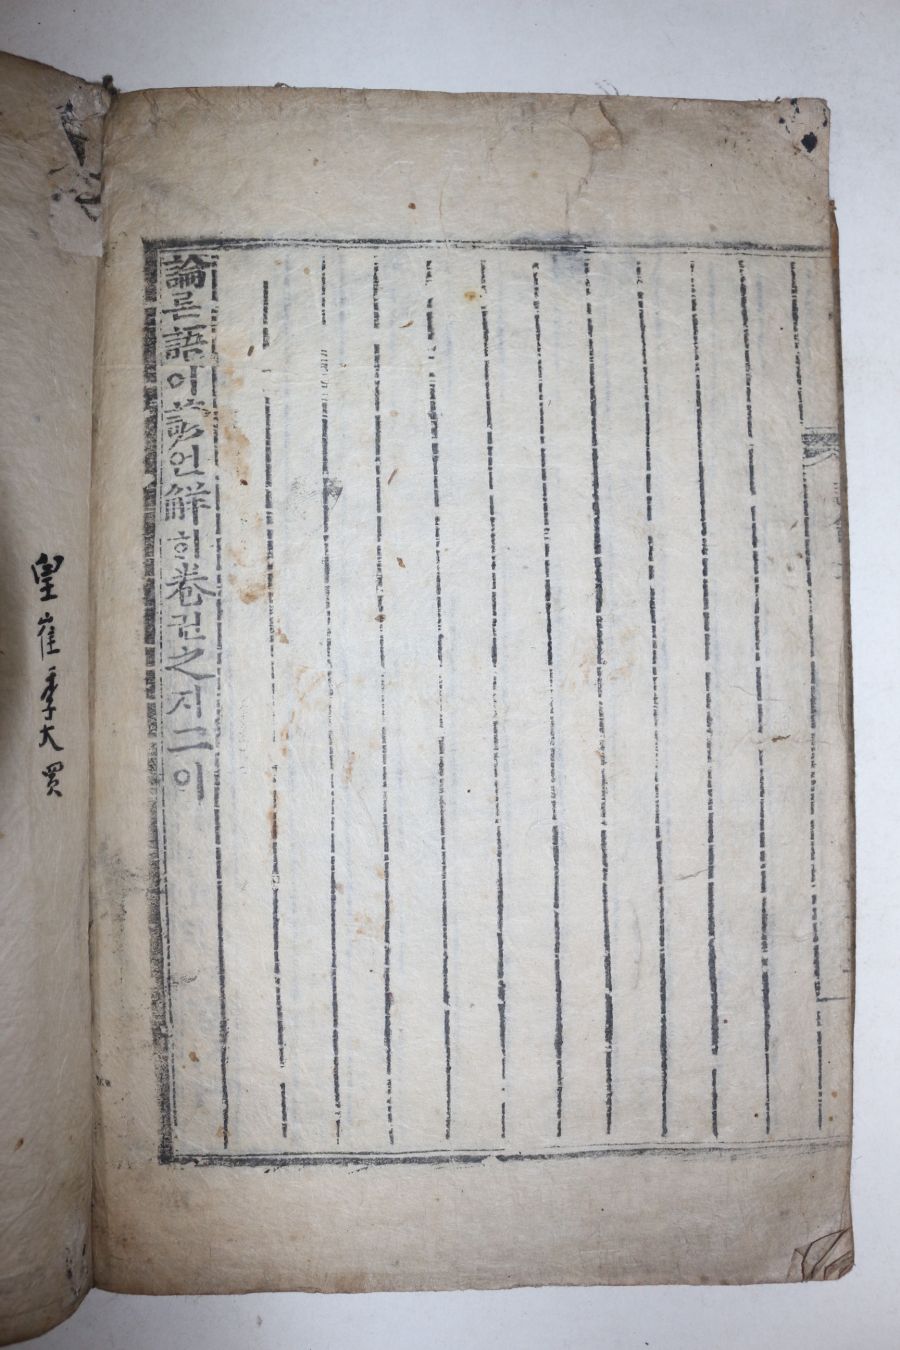 論론語어諺언解ᄒᆡ卷권之지二이
皇崔季大買